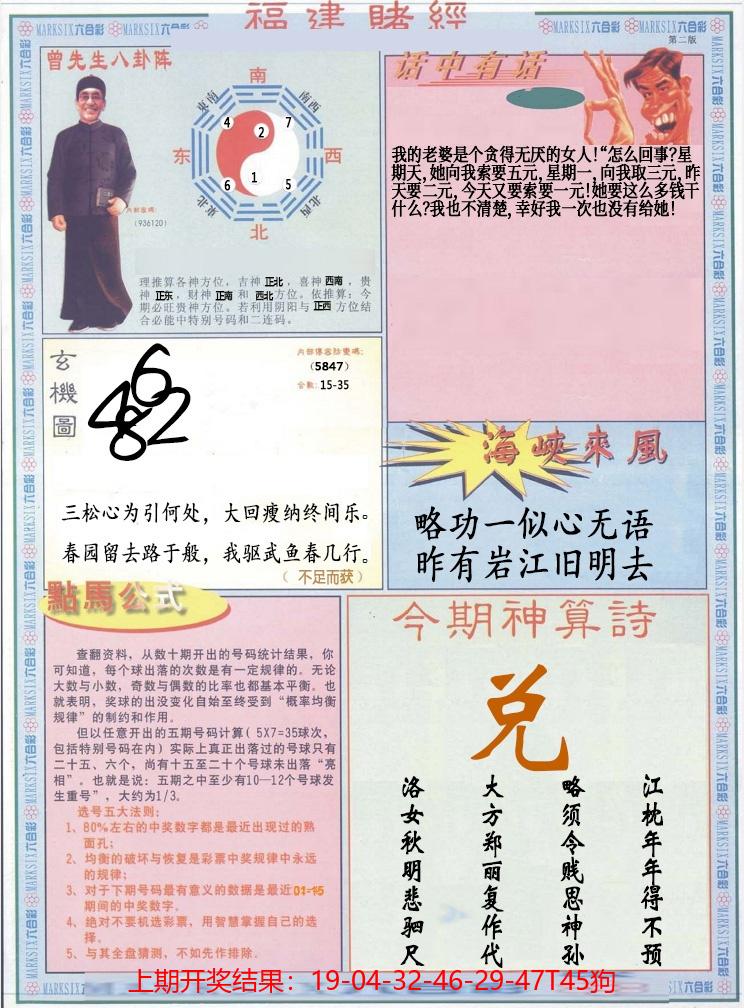 福建賭經
MARKSIX六合彩
MARKSIX六合彩
MARKSIX六合彩
MARKSIX六合彩
第二版
曾先生八卦阵
南
东南
南西
4
2
7
东
西
6
1
5
东北
北西
北
内部密碼:
(936120)
理推算各神方位，吉神 正北，喜神 西南，贵
神 正东，财神 正南 和 西北方位。依推算：今
期必旺贵神方位。若利用阴阳与 正西 方位结
合必能中特别号码和二连码。
话中有话
我的老婆是个贪得无厌的女人!“怎么回事?星
期天,她向我索要五元,星期一,向我取三元,昨
天要二元,今天又要索要一元!她要这么多钱干
什么?我也不清楚,幸好我一次也没有给她!
玄機圖
6
482
(5847)
合数: 15-35
三松心为引何处，大回瘦纳终间乐。
春园留去路于般，我驱武鱼春几行。
（ 不足而获 ）
海峽來風
略功一似心无语
昨有岩江旧明去
點馬公式
查翻资料，从数十期开出的号码统计结果，你
可知道，每个球出落的次数是有一定规律的。无论
大数与小数，奇数与偶数的比率也都基本平衡。也
就表明，奖球的出没变化自始至终受到“概率均衡
规律”的制约和作用。
但以任意开出的五期号码计算( 5X7=35球次，
包括特别号码在内) 实际上真正出落过的号球只有
二十五、六个，尚有十五至二十个号球未出落“亮
相”。也就是说：五期之中至少有10—12个号球发
生重号”，大约为1/3。
选号五大法则：
1、80%左右的中奖数字都是最近出现过的熟
面孔；
2、均衡的破坏与恢复是彩票中奖规律中永远
的规律；
3、对于下期号码最有意义的数据是最近01-15
期间的中奖数字。
4、绝对不要机选彩票，用智慧掌握自己的选
择。
5、与其全盘猜测，不如先作排除．
今期神算詩
兑
江枕年年得不预
略须令贱思神孙
大方郑丽复作代
洛女秋明悲驷尺
上期开奖结果：19-04-32-46-29-47T45狗